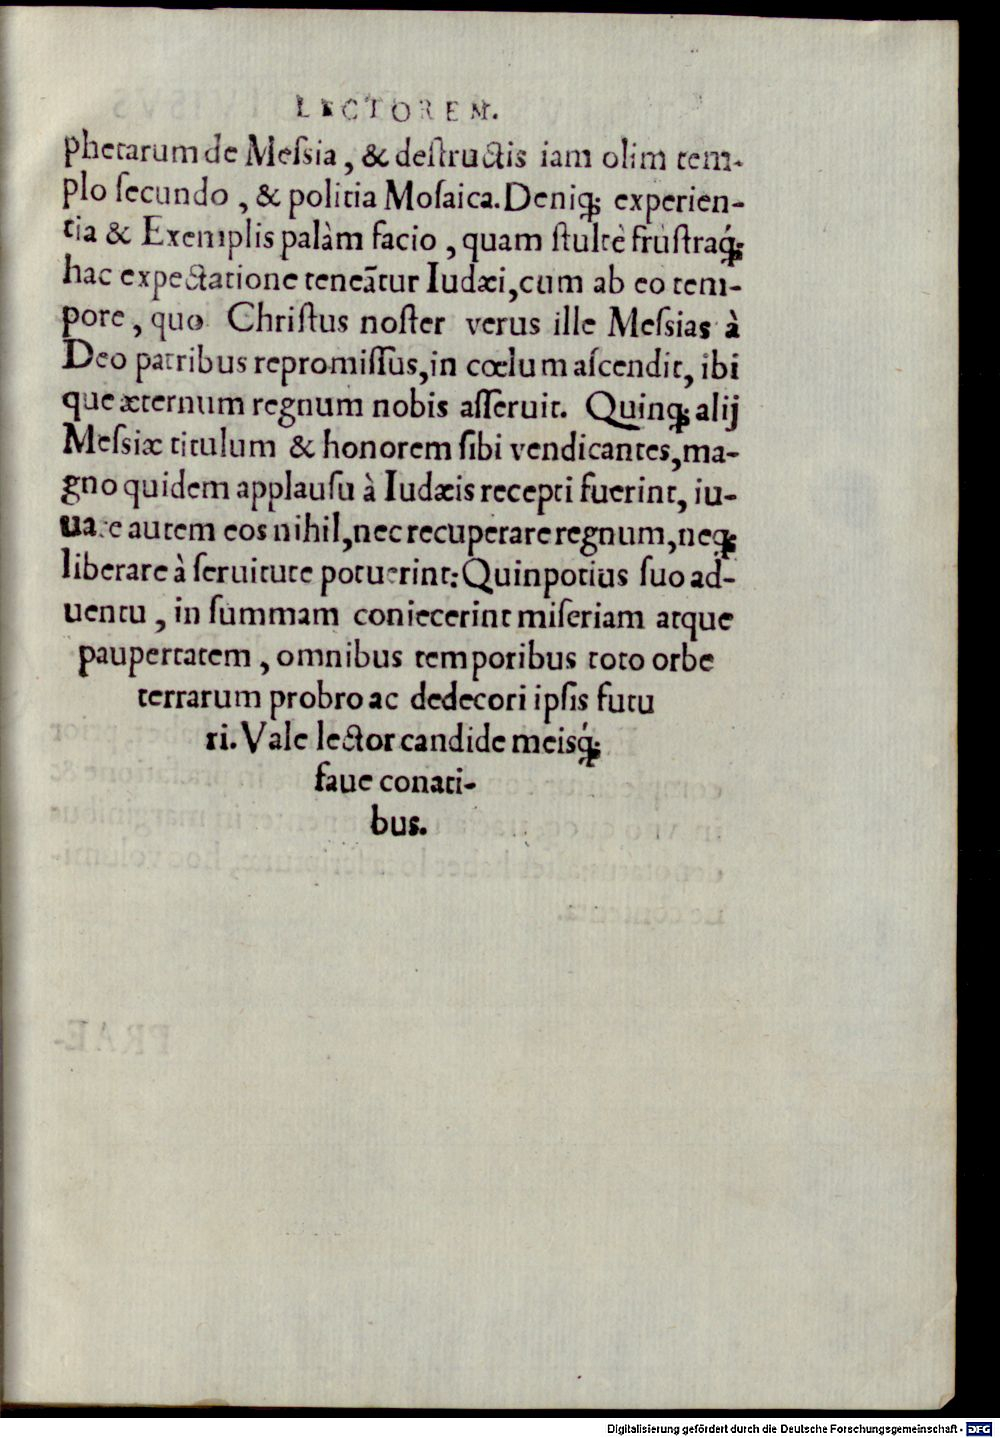 LECTOREM.
phetarum de Meſsia, & deſtructis iam olim tem-
plo ſecundo, & politia Moſaica. Deniq; experien-
tia & Exemplis palàm facio, quam ſtultè fruſtraq́;
hac expectatione teneãtur Iudæi, cum ab eo tem-
pore, quo Chriſtus noſter verus ille Meſsias à
Deo patribus repromiſſus, in cœlum aſcendit, ibi
que æternum regnum nobis aſſeruit. Quinq; alij
Meſsiæ titulum & honorem ſibi vendicantes, ma-
gno quidem applauſu à Iudæis recepti fuerint, iu-
uare autem eos nihil, nec recuperare regnum, neq;
liberare à ſeruitute potuerint: Quinpotius ſuo ad-
uentu, in ſummam coniecerint miſeriam atque
paupertatem, omnibus temporibus toto orbe
terrarum probro ac dedecori ipſis futu
ri. Vale lector candide meisq́;
faue conati-
bus.
Digitalisierung gefördert durch die Deutsche Forschungsgemeinschaft - DFG